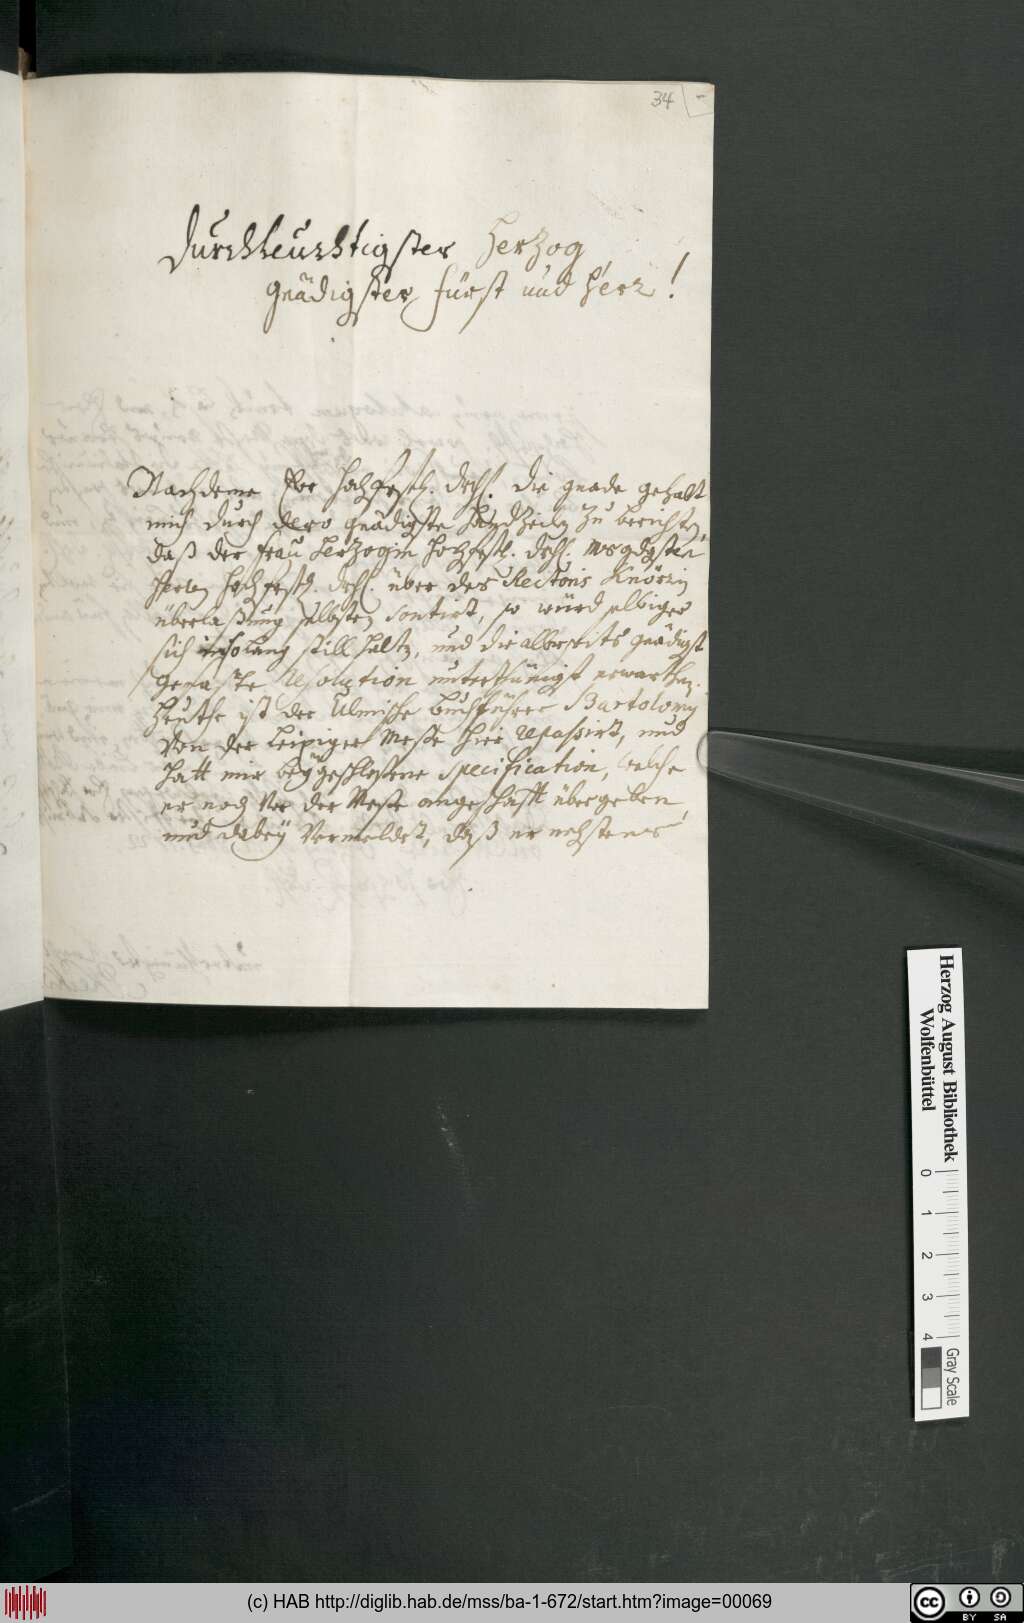 34
Durchleuchtigster Herzog
gnädigster Fürst und Herr!
Nachdeme Ewe Hochfrstl. Dchl. die gnade gehabt
mich durch dero gnädigste Handzeilen zu berichten
daß der Frau Herzogin Hochfrstl. Dchl.
Herren Hochfrstl. Dchl. über des Rectoris Knörrin
überlaßung selbsten, so würd selbiger
sich solang still halten, und die allerseits gnädigst
gefaste Resolution unterthänigst erwarthen.
Heuthe ist der Ulmische Buchführer Bartolomi
von der Leipziger Messe hier repassirt, und
hatt mir beÿgeschloßene Specification, welche
er noch vor der Messe angeschafft übergeben
und dabeÿ vermeldet, daß er nechstens
Herzog August Bibliothek
Wolfenbüttel
0 1 2 3 4
Gray Scale
(c) HAB http://diglib.hab.de/mss/ba-1-672/start.htm?image=00069
cc BY SA